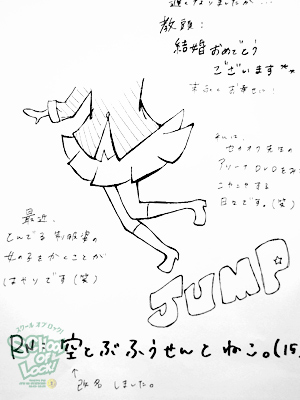 遅くなりましたが…
教頭：
結婚おめでとう
ございます**
末永くお幸せに！
私は、
セカオワ先生の
アリーナDVDをみて
ニヤニヤする
日々です。(笑)
最近、
とんでる制服姿の
女の子をかくことが
はやりです(笑)
JUMP
スクールオブロック！
School Of Lock!
RN：空とぶふうせんとねこ。(15
↑
改名しました。